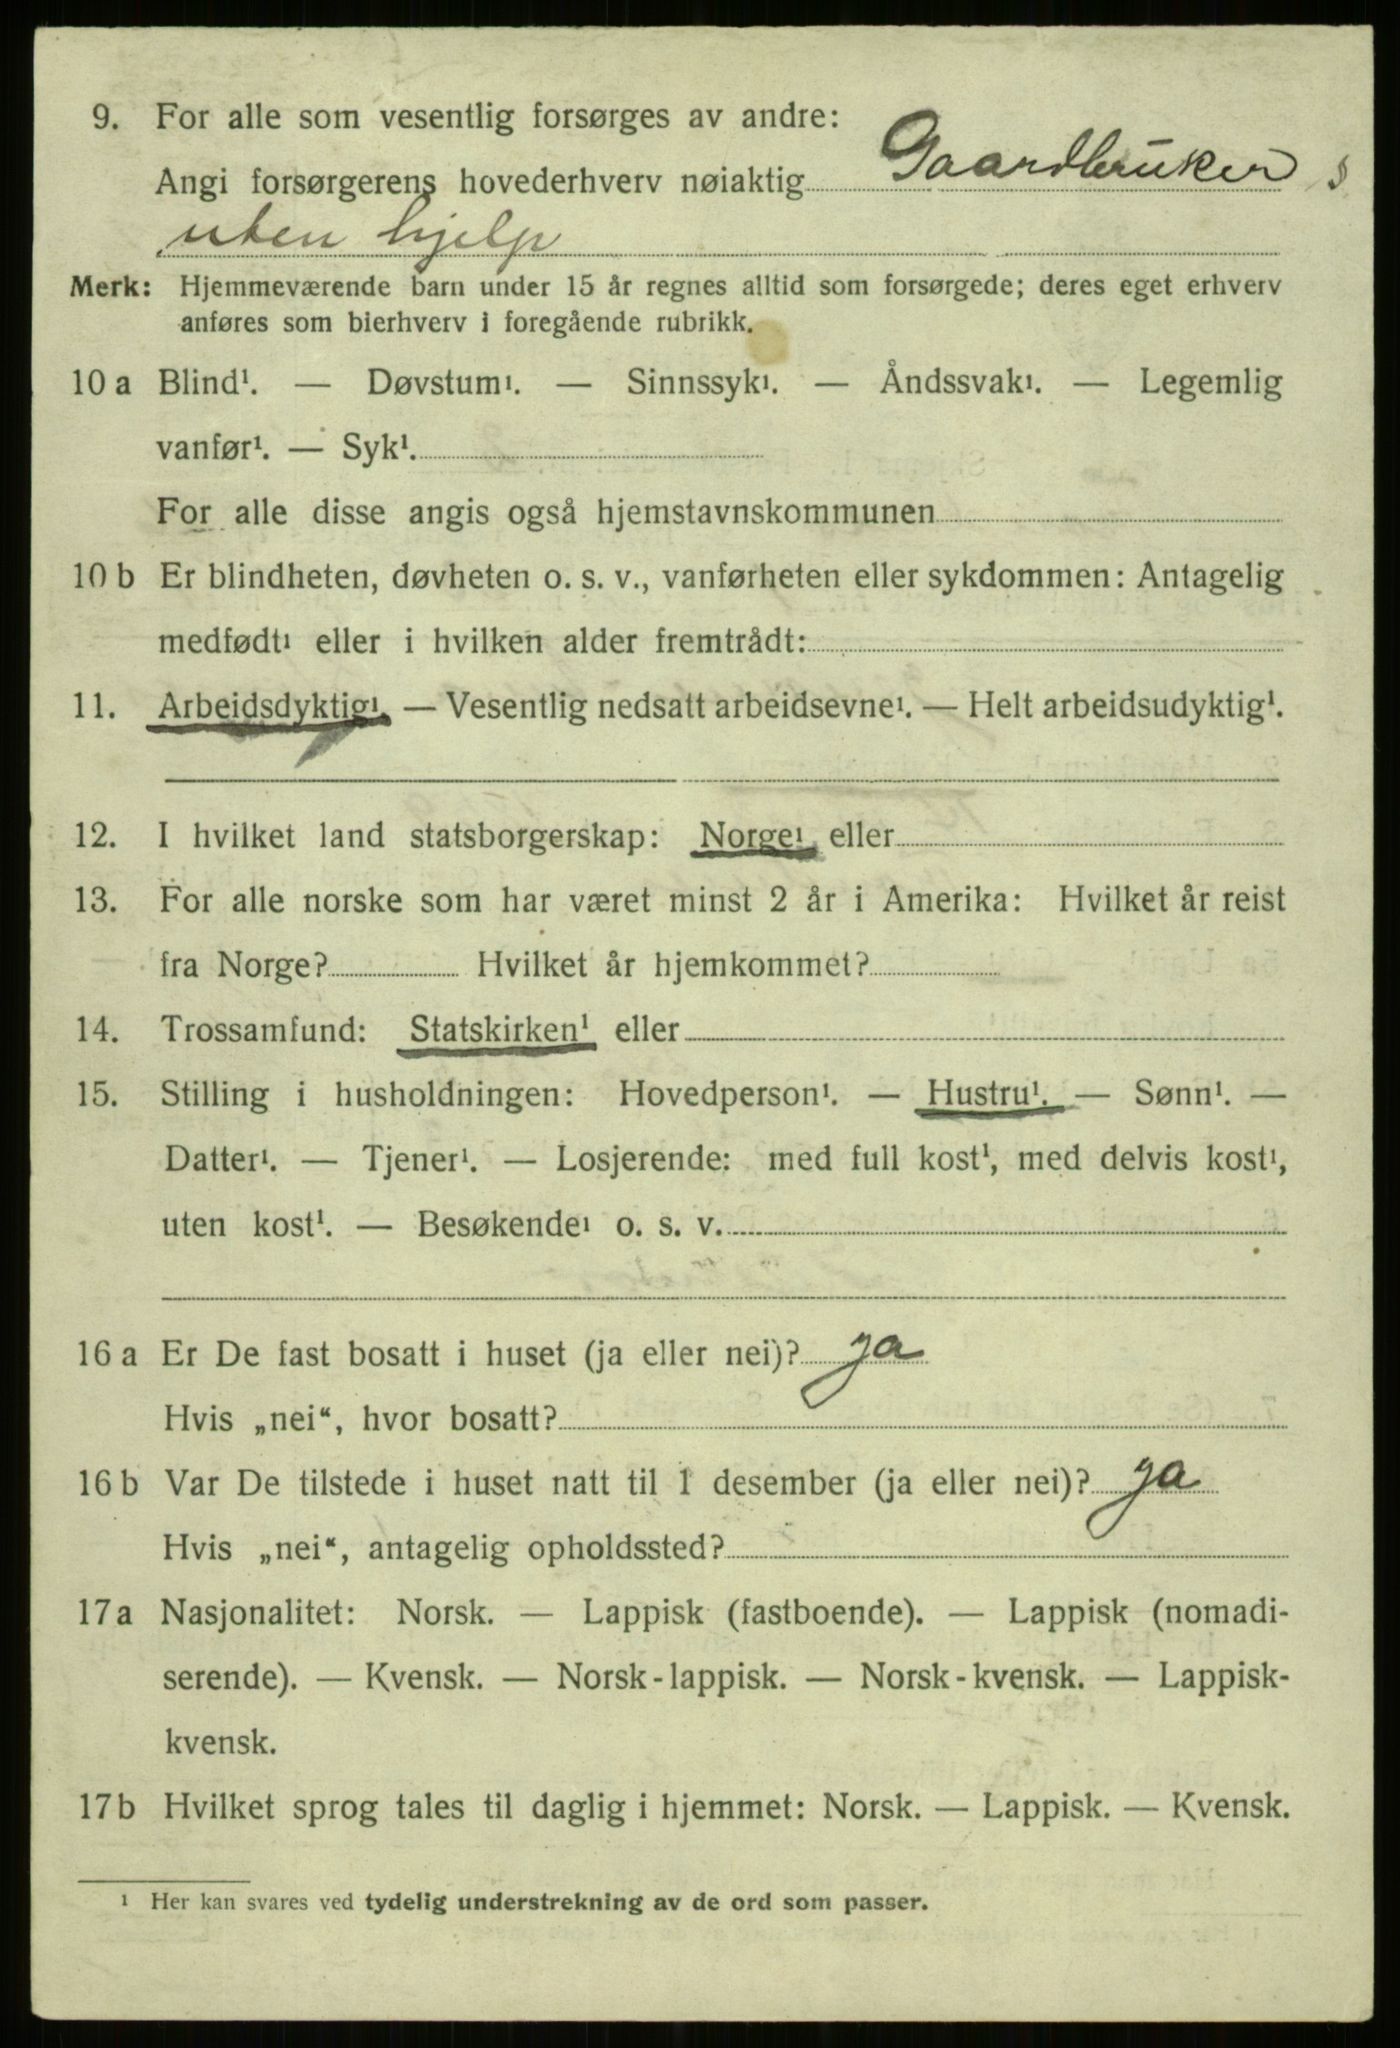 9. For alle som vesentlig forsørges av andre:
Angi forsørgerens hovederhverv nøiaktig Gaardbruker s
uten hjelp
Merk: Hjemmeværende barn under 15 år regnes alltid som forsørgede; deres eget erhverv
anføres som bierhverv i foregående rubrikk.
10 a Blind¹. — Døvstum¹. — Sinnssyk¹. — Åndssvak¹. — Legemlig
vanfør¹. — Syk¹.
For alle disse angis også hjemstavnskommunen
10 b Er blindheten, døvheten o. s. v., vanførheten eller sykdommen: Antagelig
medfødt¹ eller i hvilken alder fremtrådt:
11. Arbeidsdyktig¹. — Vesentlig nedsatt arbeidsevne¹. — Helt arbeidsudyktig¹.
12. I hvilket land statsborgerskap: Norge¹ eller
13. For alle norske som har været minst 2 år i Amerika: Hvilket år reist
fra Norge? Hvilket år hjemkommet?
14. Trossamfund: Statskirken¹ eller
15. Stilling i husholdningen: Hovedperson¹. — Hustru¹. — Sønn¹. —
Datter¹. — Tjener¹. — Losjerende: med full kost¹, med delvis kost¹,
uten kost¹. — Besøkende¹ o. s. v.
16 a Er De fast bosatt i huset (ja eller nei)? ja
Hvis „nei“, hvor bosatt?
16 b Var De tilstede i huset natt til 1 desember (ja eller nei)? ja
Hvis „nei“, antagelig opholdssted?
17 a Nasjonalitet: Norsk. — Lappisk (fastboende). — Lappisk (nomadi-
serende). — Kvensk. — Norsk-lappisk. — Norsk-kvensk. — Lappisk-
kvensk.
17 b Hvilket sprog tales til daglig i hjemmet: Norsk. — Lappisk. — Kvensk.
¹ Her kan svares ved tydelig understrekning av de ord som passer.